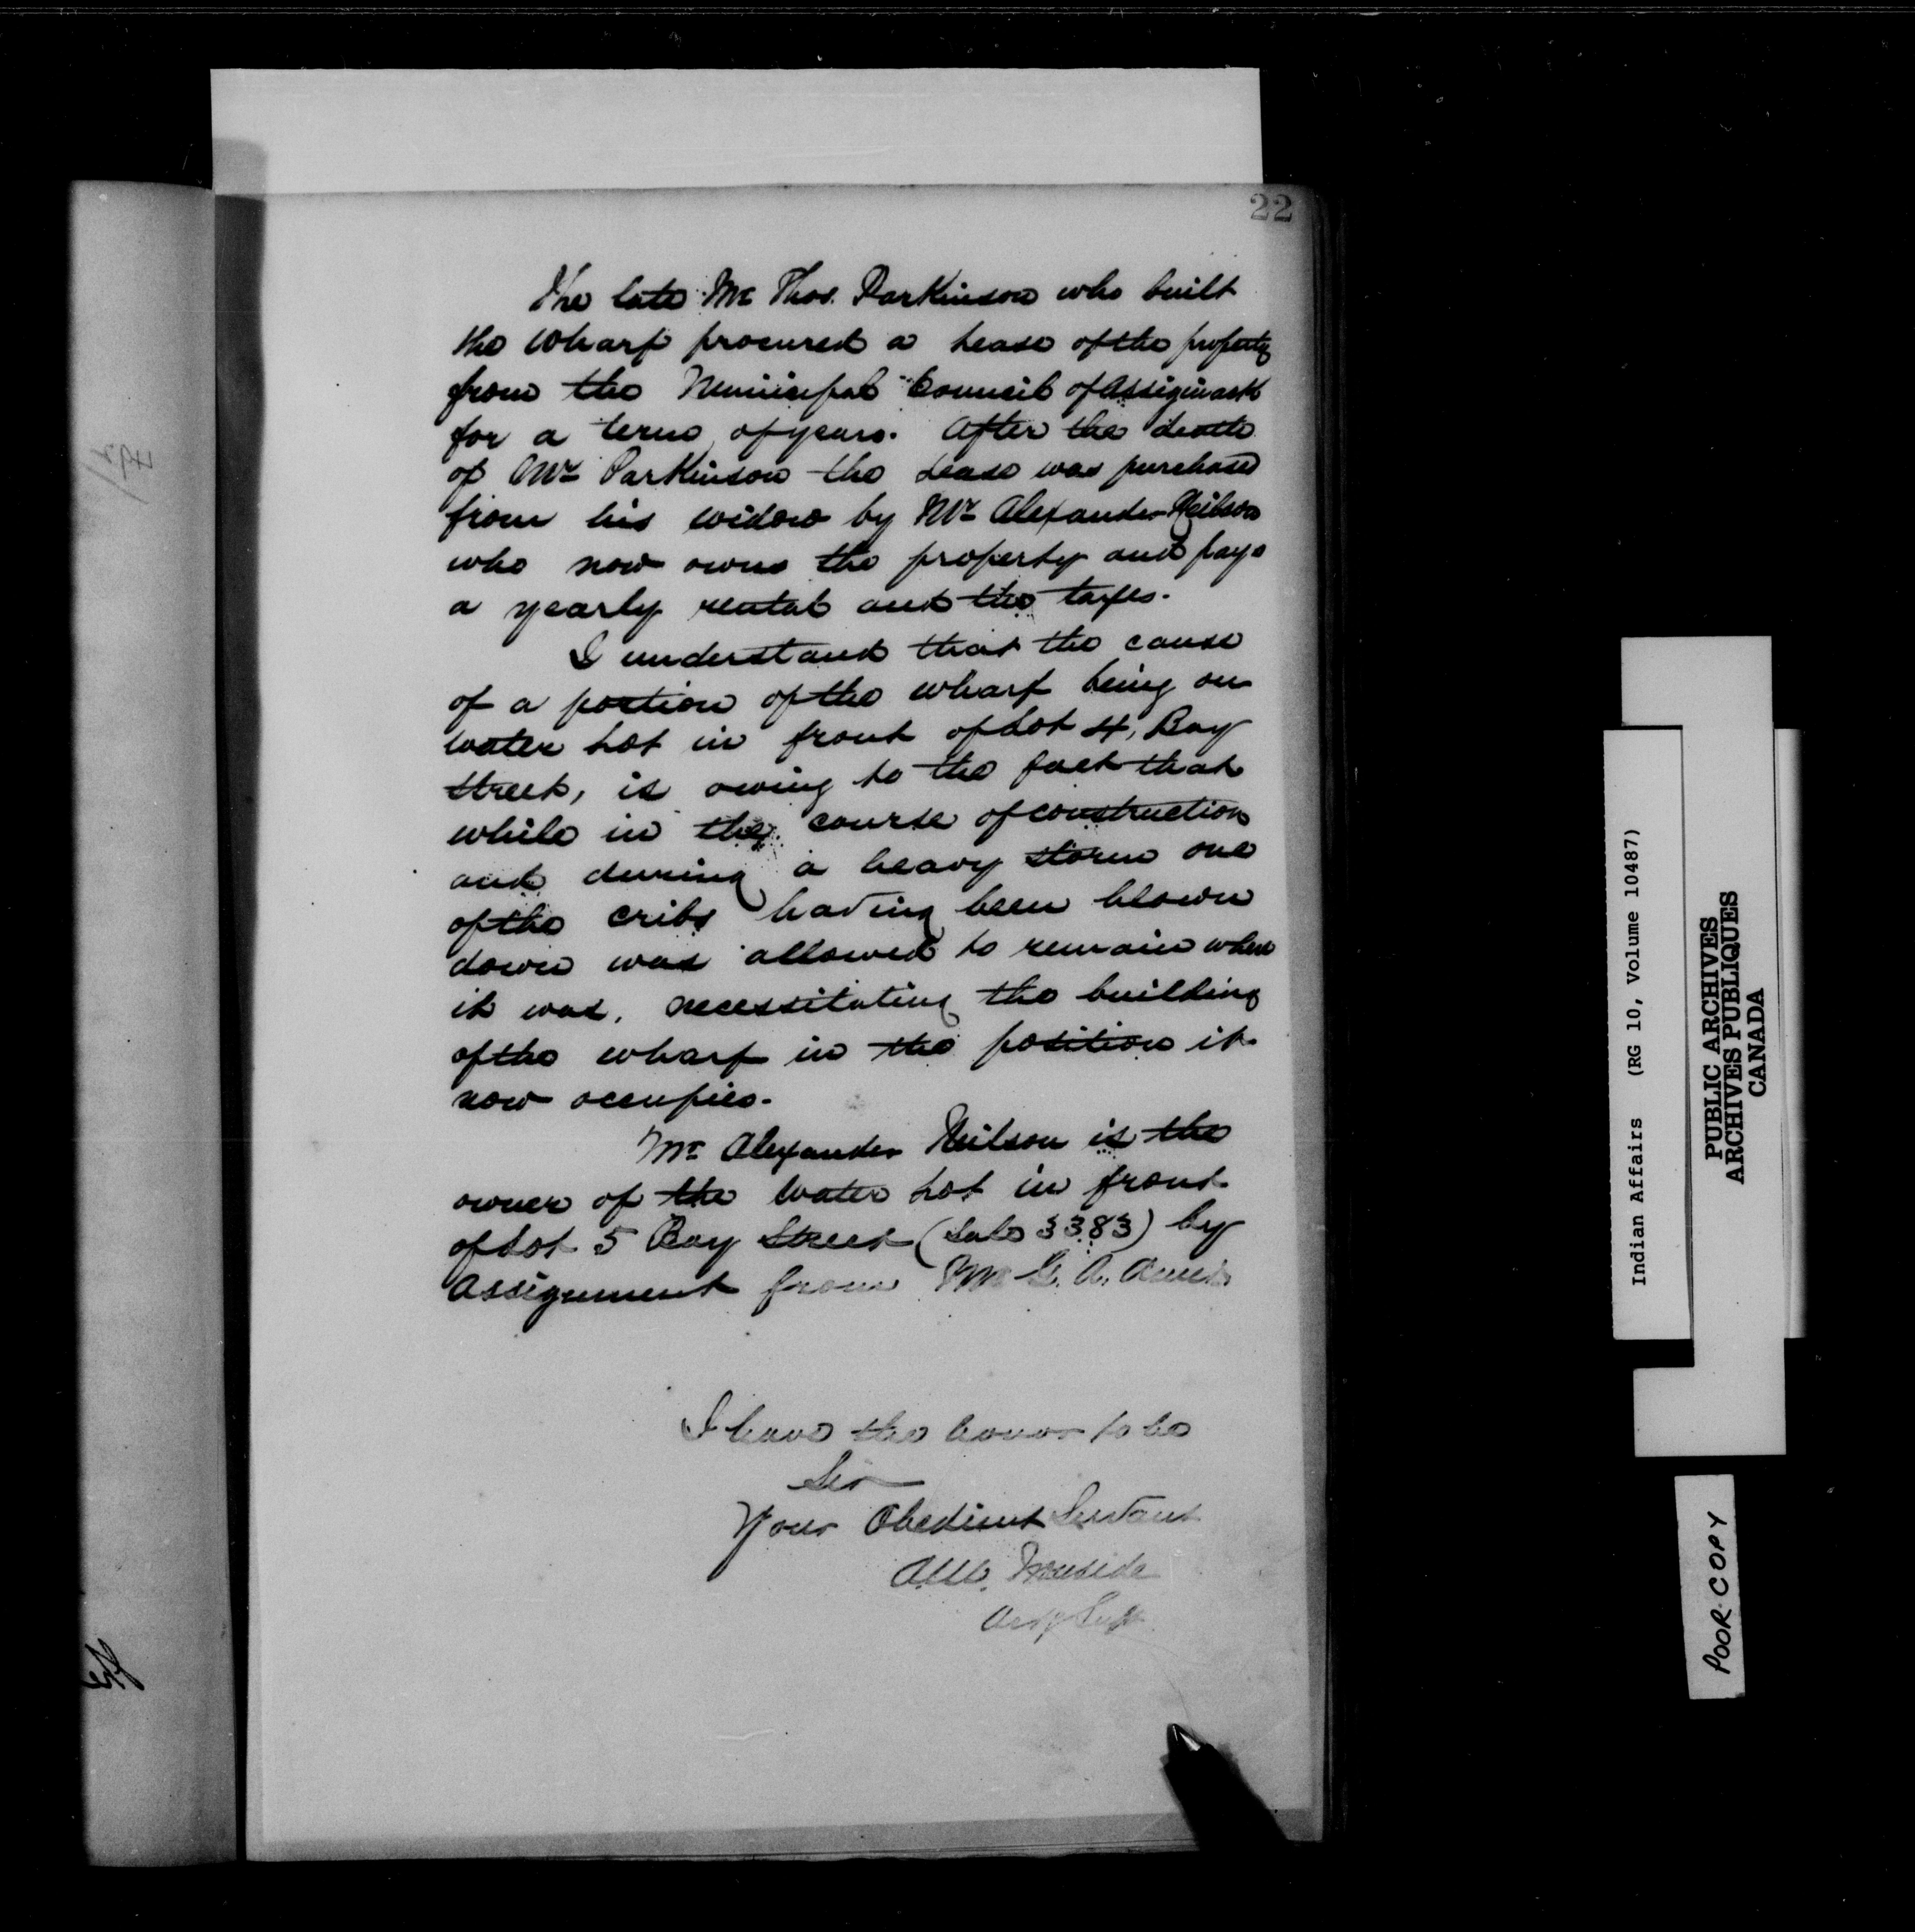 22
The late Mr Thos. Parkinson who built
the wharf procured a Lease of the property
from the Municipal Council of Assiginack
for a term of years. After the death
of Mr Parkinson the Lease was purchased
from his widow by Mr Alexander Neilson
who now owns the property and pays
a yearly rental and the taxes.
I understand that the cause
of a portion of the wharf being on
water Lot in front of Lot 4, Bay
Street, is owing to the fact that
while in the course of construction
and during a heavy storm one
of the cribs having been blown
down was allowed to remain where
it was, necessitating the building
of the wharf in the position it
now occupies.
Mr Alexander Neilson is the
owner of the Water Lot in front
of Lot 5 Bay Street (Sale 3383) by
assignment from Mr G. A.
I have the honor to be
Sir
Your Obedient Servant
Ironside
Supt.
Indian Affairs (RG 10, Volume 10487)
PUBLIC ARCHIVES
ARCHIVES PUBLIQUES
CANADA
POOR COPY